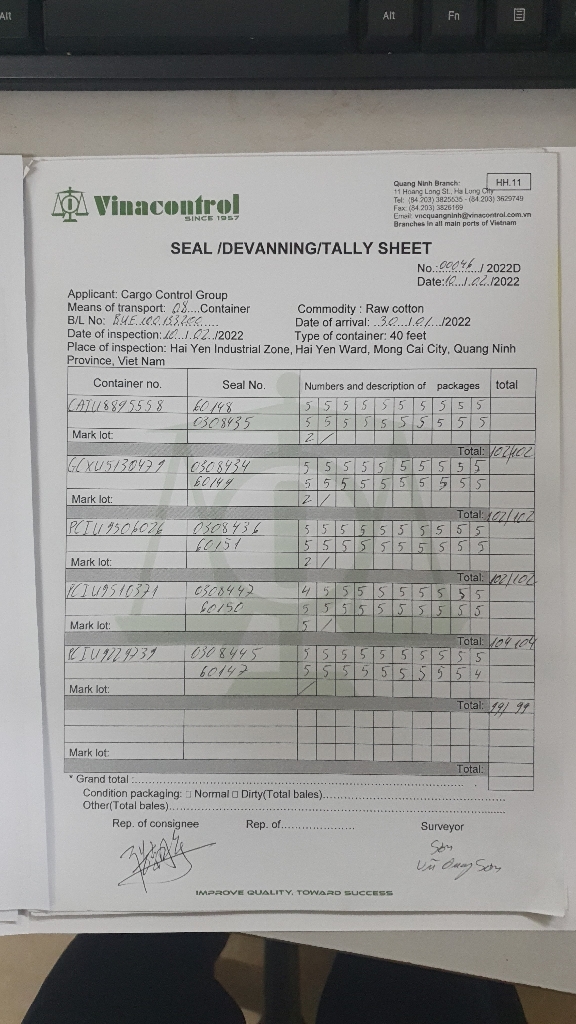 Alt
Alt
Fn
Vinacontrol
SINCE 1957
Quang Ninh Branch:
HH.11
11 Hoang Long St., Ha Long City
Tel: (84.203) 3825535 - (84.203) 3629749
Fax: (84.203) 3826169
Email: vncquangninh@vinacontrol.com.vn
Branches in all main ports of Vietnam
SEAL /DEVANNING/TALLY SHEET
No.:00046./ 2022D
Date:10./.02./2022
Applicant: Cargo Control Group
Means of transport: 08....Container Commodity : Raw cotton
B/L No: Date of arrival: .30./.01./2022
Date of inspection:10./.02./2022 Type of container: 40 feet
Place of inspection: Hai Yen Industrial Zone, Hai Yen Ward, Mong Cai City, Quang Ninh
Province, Viet Nam
Container no. Seal No. Numbers and description of packages total
CAIU8895558 60148 5 5 5 5 5 5 5 5 5 5
0308435 5 5 5 5 5 5 5 5 5 5
Mark lot: 2 /
Total: 102/102
GCXU5130479 0308434 5 5 5 5 5 5 5 5 5 5
60149 5 5 5 5 5 5 5 5 5 5
Mark lot: 2 /
Total: 102/102
PCIU9506026 0308436 5 5 5 5 5 5 5 5 5 5
60151 5 5 5 5 5 5 5 5 5 5
Mark lot: 2 /
Total: 102/102
PCIU9510371 0308447 4 5 5 5 5 5 5 5 5 5
60150 5 5 5 5 5 5 5 5 5 5
Mark lot: 5 /
Total: 104 104
PCIU9229739 0308445 5 5 5 5 5 5 5 5 5 5
60147 5 5 5 5 5 5 5 5 5 4
Mark lot: /
Total: 99/ 99
Mark lot:
Total:
* Grand total :
Condition packaging: □ Normal □ Dirty(Total bales)
Other(Total bales)
Rep. of consignee Rep. of Surveyor
Sơn
Vũ Quang Sơn
IMPROVE QUALITY, TOWARD SUCCESS